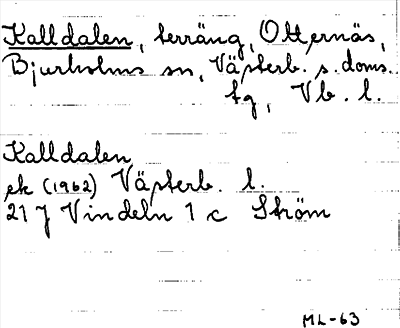 Kalldalen, terräng, Otternäs,
Bjurholms sn, Västerb. s. doms.
tg, Vb. l.
Kalldalen
ek (1962) Västerb. l.
21 J Vindeln 1 c Ström
ML-63